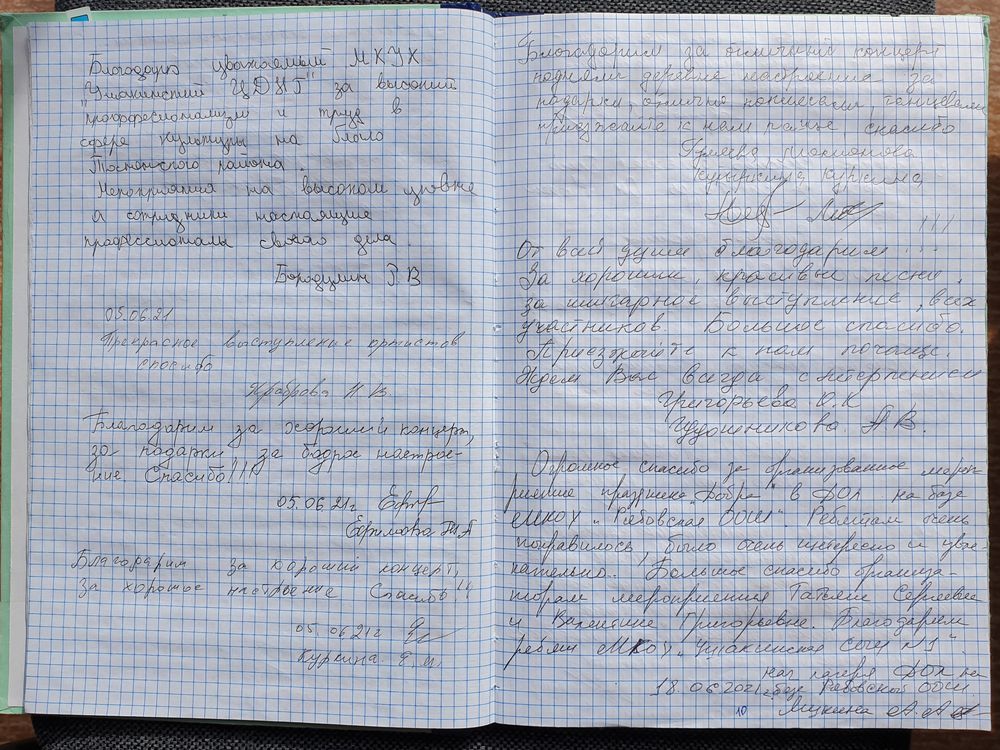 Благодарю уважаемый МКУК
"Ушакинский ЦДНТ" за высокий
профессионализм и труд в
сфере культуры на благо
Тосненского района.
Мероприятия на высоком уровне
а сотрудники настоящие
профессионалы своего дела.
Бородулин Р В
05.06.21
Прекрасное выступление артистов
спасибо
Храброва Н В.
Благодарим за хороший концерт,
за подарки, за бодрое настрое-
ние. Спасибо!!!
05.06.21г
Ефимова
Благодарим за хороший концерт,
за хорошее настроение Спасибо!!
05.06 21г
Куркина
Благодарим за отличный концерт
подняли деревне настроение за
подарки, отлично танцевали
приезжайте к нам спасибо
Куркина
От всей души благодарим !!!
За хорошии, красивые песни.
за шикарное выступление, всех
участников. Большое спасибо.
Приезжайте к нам почаще.
Ждем Вас всегда с нетерпением
Григорьева О.К
А В.
Огромное спасибо за организованное мероп-
риятие праздника "Добра" в ДОЛ на базе
МКОУ "Рябовская ООШ" Ребятам очень
понравилось, было очень интересно и увле-
кательно. Большое спасибо организа-
торам мероприятия Татьяне Сергеевне
и Валентине Григорьевне. Благодарим
ребят МКОУ "Ушакинская СОШ №1".
нач лагеря ДОЛ на
18.06.2021г. базе Рябовской ООШ
А.А
10